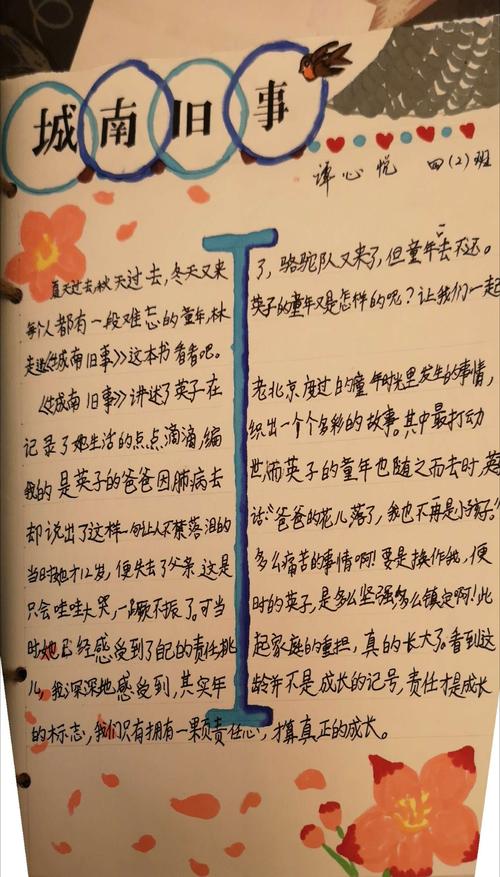 城南旧事
谭心悦 四(2)班
夏天过去,秋天过去,冬天又来了，骆驼队又来了，但童年一去不还。
每个人都有一段难忘的童年,林英子的童年又是怎样的呢？让我们一起
走进《城南旧事》这本书看看吧。
《城南旧事》讲述了英子在老北京度过的童年时光里发生的事情，
记录了她生活的点点滴滴，编织出一个个多彩的故事。其中最打动
我的是英子的爸爸因肺病去世,而英子的童年也随之而去时,英
却说出了这样一句让人不禁落泪的话:“爸爸的花儿落了，我也不再是小孩子。”
当时她才12岁，便失去了父亲.这是多么痛苦的事情啊！要是换作我，便
只会哇哇大哭，一蹶不振了。可当时的英子，是多么坚强多么镇定啊！此
时她已经感受到了自己的责任,挑起家庭的重担，真的长大了。看到这
儿，我深深地感受到，其实年龄并不是成长的记号，责任才是成长
的标志，我们只有拥有一颗责任心，才算真正的成长。